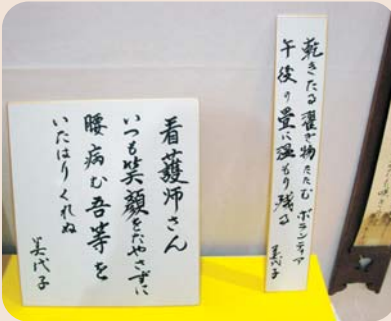 乾きたる濯ぎ物たたむボランティア
午後の畳に温もり残る
美代子
看護師さん
いつも笑顔をたやさずに
腰病む吾等を
いたはりくれぬ
美代子